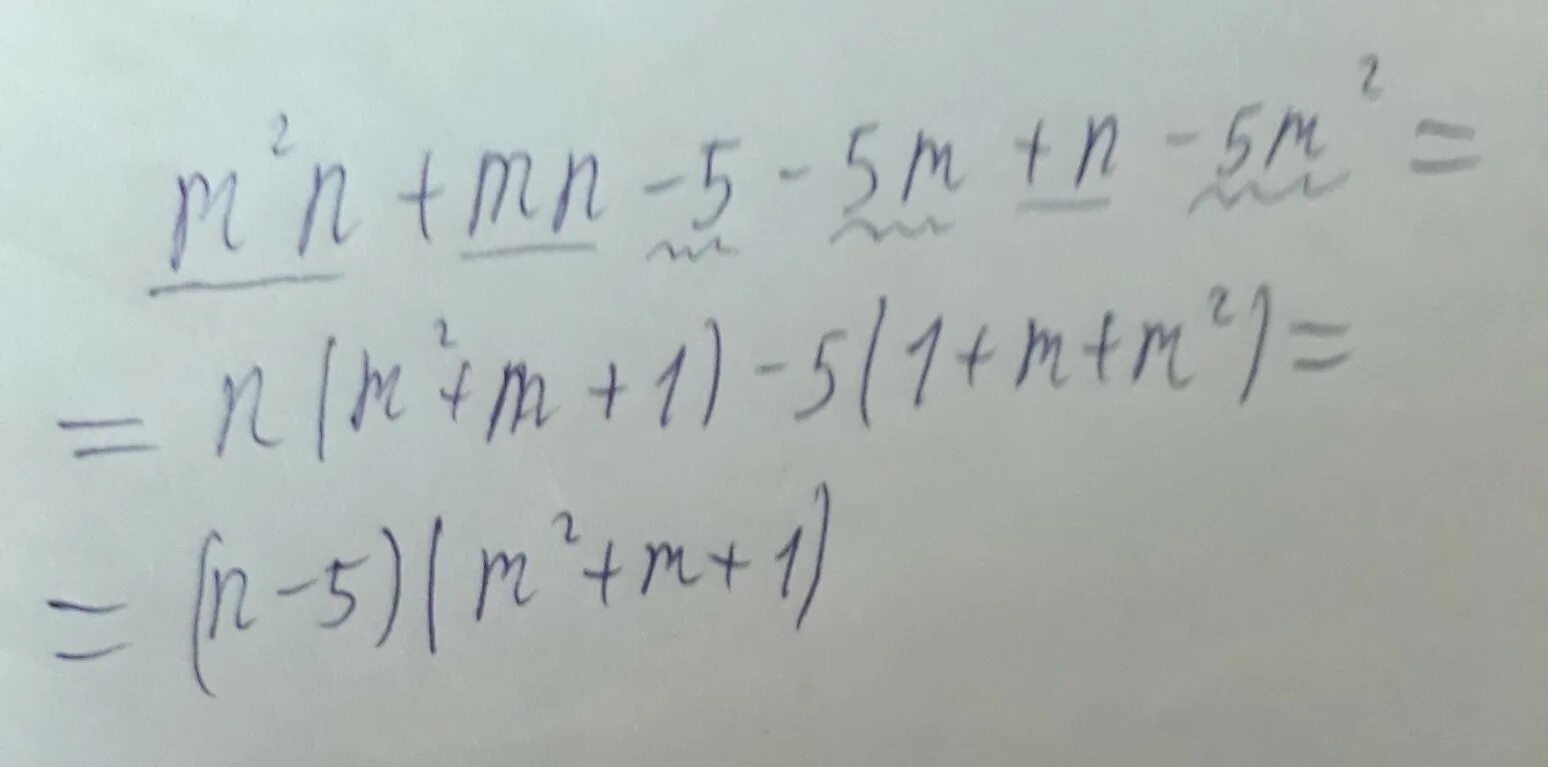 m²n + mn - 5 - 5m + n - 5m² =
= n(m² + m + 1) - 5(1 + m + m²) =
= (n - 5)(m² + m + 1)